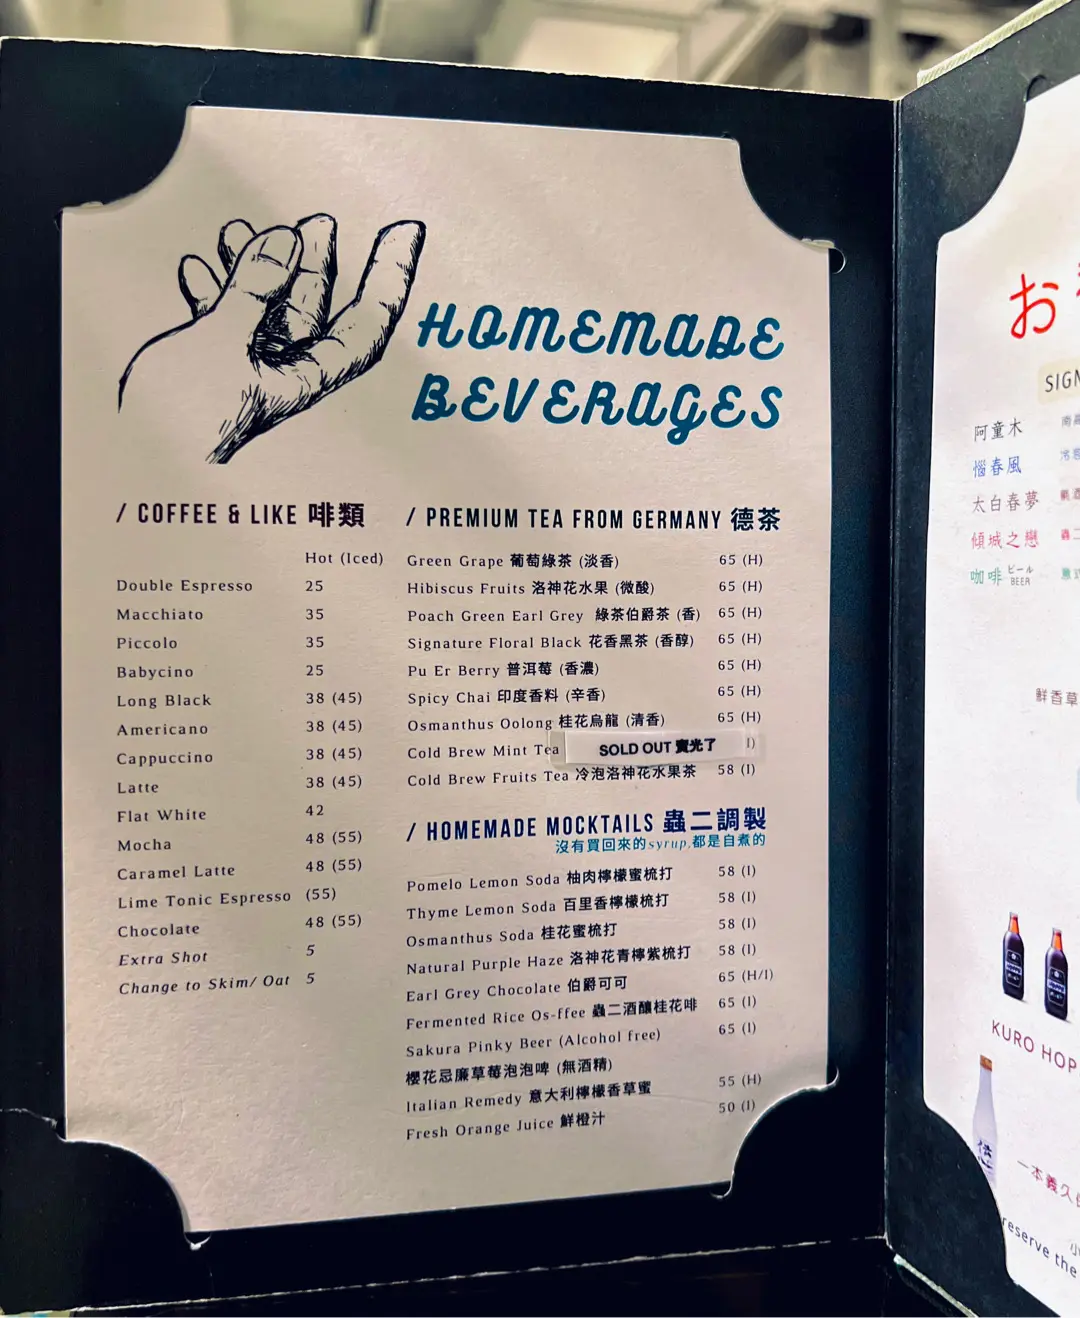 HOMEMADE
BEVERAGES
/ COFFEE & LIKE 啡類
Hot (Iced)
Double Espresso 25
Macchiato 35
Piccolo 35
Babycino 25
Long Black 38 (45)
Americano 38 (45)
Cappuccino 38 (45)
Latte 38 (45)
Flat White 42
Mocha 48 (55)
Caramel Latte 48 (55)
Lime Tonic Espresso (55)
Chocolate 48 (55)
Extra Shot 5
Change to Skim/ Oat 5
/ PREMIUM TEA FROM GERMANY 德茶
Green Grape 葡萄綠茶 (淡香) 65 (H)
Hibiscus Fruits 洛神花水果 (微酸) 65 (H)
Poach Green Earl Grey 綠茶伯爵茶 (香) 65 (H)
Signature Floral Black 花香黑茶 (香醇) 65 (H)
Pu Er Berry 普洱莓 (香濃) 65 (H)
Spicy Chai 印度香料 (辛香) 65 (H)
Osmanthus Oolong 桂花烏龍 (清香) 65 (H)
Cold Brew Mint Tea SOLD OUT 賣光了 I)
Cold Brew Fruits Tea 冷泡洛神花水果茶 58 (I)
/ HOMEMADE MOCKTAILS 蟲二調製
沒有買回來的syrup,都是自煮的
Pomelo Lemon Soda 柚肉檸檬蜜梳打 58 (I)
Thyme Lemon Soda 百里香檸檬梳打 58 (I)
Osmanthus Soda 桂花蜜梳打 58 (I)
Natural Purple Haze 洛神花青檸紫梳打 58 (I)
Earl Grey Chocolate 伯爵可可 65 (H/I)
Fermented Rice Os-ffee 蟲二酒釀桂花啡 65 (I)
Sakura Pinky Beer (Alcohol free) 65 (I)
櫻花忌廉草莓泡泡啤 (無酒精)
Italian Remedy 意大利檸檬香草蜜 55 (H)
Fresh Orange Juice 鮮橙汁 50 (I)
お
SIGN
阿童木
惱春風
太白春夢
傾城之戀
咖啡 ビール BEER
鮮香草
KURO HOP
一本義久
reserve the
小